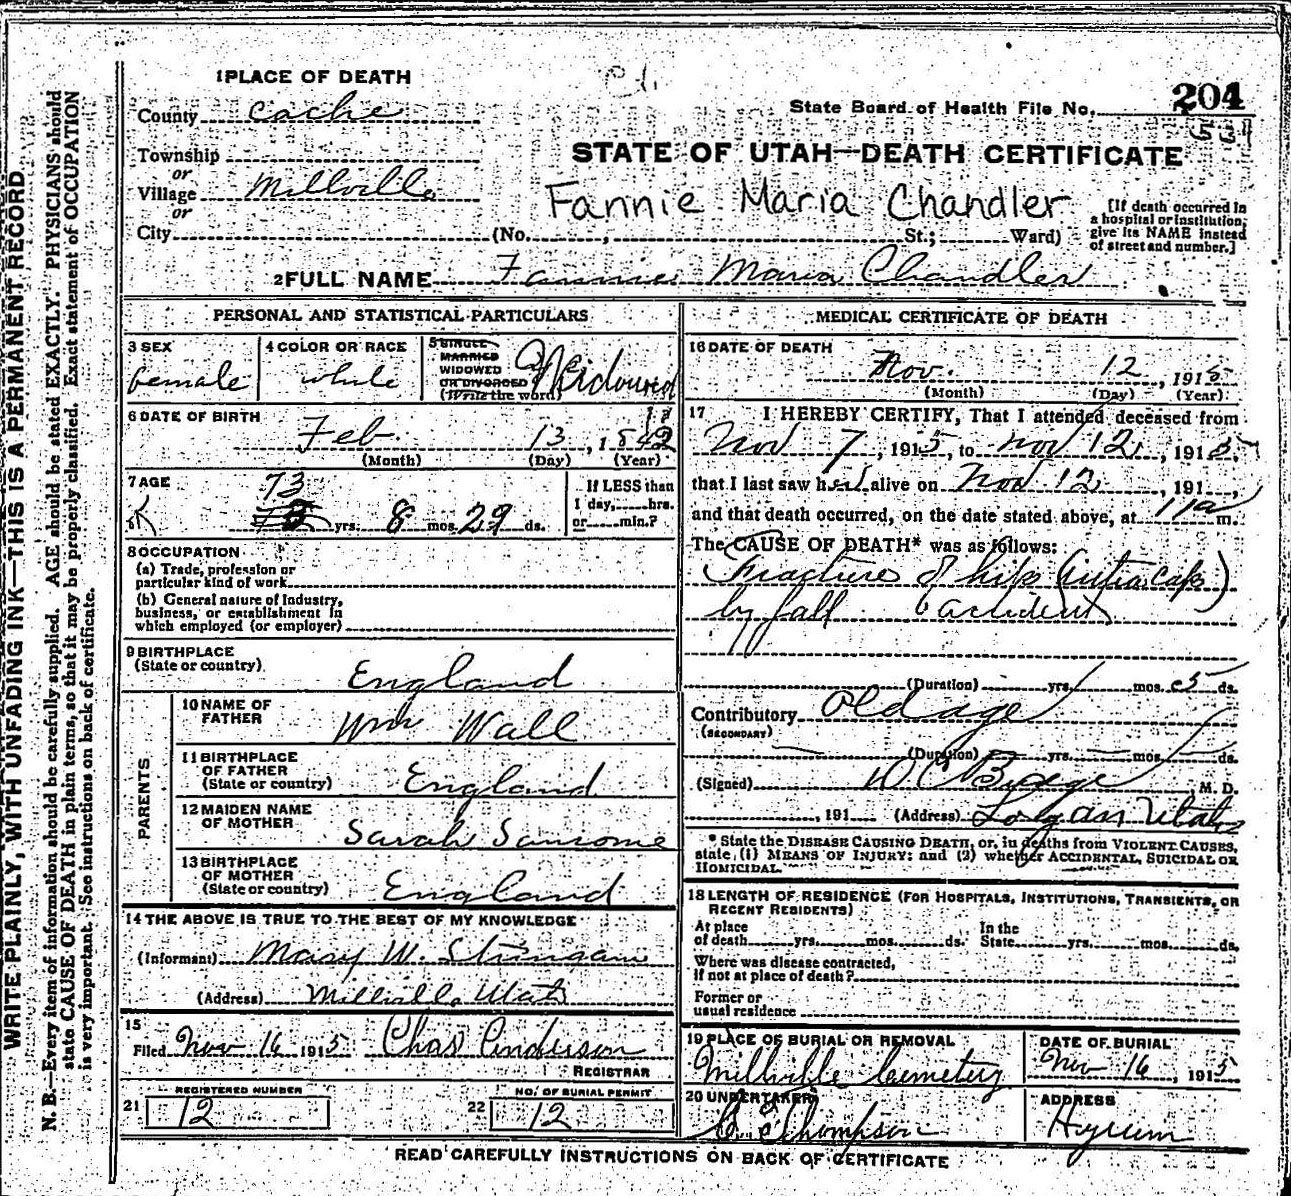 WRITE PLAINLY, WITH UNFADING INK—THIS IS A PERMANENT RECORD
N. B.—Every item of information should be carefully supplied. AGE should be stated EXACTLY. PHYSICIANS should
state CAUSE OF DEATH in plain terms, so that it may be properly classified. Exact statement of OCCUPATION
is very important. See instructions on back of certificate.
1 PLACE OF DEATH
County Cache
State Board of Health File No. 204
Township
or
Village Millville
or
STATE OF UTAH—DEATH CERTIFICATE
Fannie Maria Chandler
[If death occurred in
a hospital or institution,
give its NAME instead
of street and number.]
City (No. , St.; Ward)
2 FULL NAME Fannie Maria Chandler
PERSONAL AND STATISTICAL PARTICULARS
3 SEX
female
4 COLOR OR RACE
white
5 SINGLE
MARRIED
WIDOWED
OR DIVORCED
(Write the word)
Widowed
6 DATE OF BIRTH
Feb. 13, 1842
(Month) (Day) (Year)
7 AGE
73 yrs. 8 mos. 29 ds.
If LESS than
1 day, hrs.
or min.?
8 OCCUPATION
(a) Trade, profession or
particular kind of work
(b) General nature of industry,
business, or establishment in
which employed (or employer)
9 BIRTHPLACE
(State or country)
England
PARENTS
10 NAME OF
FATHER
Wm Wall
11 BIRTHPLACE
OF FATHER
(State or country)
England
12 MAIDEN NAME
OF MOTHER
Sarah Sansome
13 BIRTHPLACE
OF MOTHER
(State or country)
England
14 THE ABOVE IS TRUE TO THE BEST OF MY KNOWLEDGE
(Informant) Mary W.
(Address) Millville Utah
15
Filed Nov 16 1915 Chas Anderson
REGISTRAR
REGISTERED NUMBER
21 12
NO. OF BURIAL PERMIT
22 12
MEDICAL CERTIFICATE OF DEATH
16 DATE OF DEATH
Nov. 12, 1915
(Month) (Day) (Year)
17 I HEREBY CERTIFY, That I attended deceased from
Nov 7, 1915, to Nov 12, 1915,
that I last saw her alive on Nov 12, 191 ,
and that death occurred, on the date stated above, at 11 a m.
The CAUSE OF DEATH* was as follows:
Fracture of hip (intra caps)
by fall accident
(Duration) yrs. mos. 5 ds.
Contributory Old age
(SECONDARY)
(Duration) yrs. mos. ds.
(Signed) M. D.
, 191 (Address) Logan Utah
* State the DISEASE CAUSING DEATH, or, in deaths from VIOLENT CAUSES,
state (1) MEANS OF INJURY; and (2) whether ACCIDENTAL, SUICIDAL OR
HOMICIDAL.
18 LENGTH OF RESIDENCE (FOR HOSPITALS, INSTITUTIONS, TRANSIENTS, OR
RECENT RESIDENTS)
At place
of death yrs. mos. ds.
In the
State yrs. mos. ds.
Where was disease contracted,
if not at place of death?
Former or
usual residence
19 PLACE OF BURIAL OR REMOVAL
Millville Cemetery
DATE OF BURIAL
Nov 16, 1915
20 UNDERTAKER
Thompson
ADDRESS
Hyrum
READ CAREFULLY INSTRUCTIONS ON BACK OF CERTIFICATE